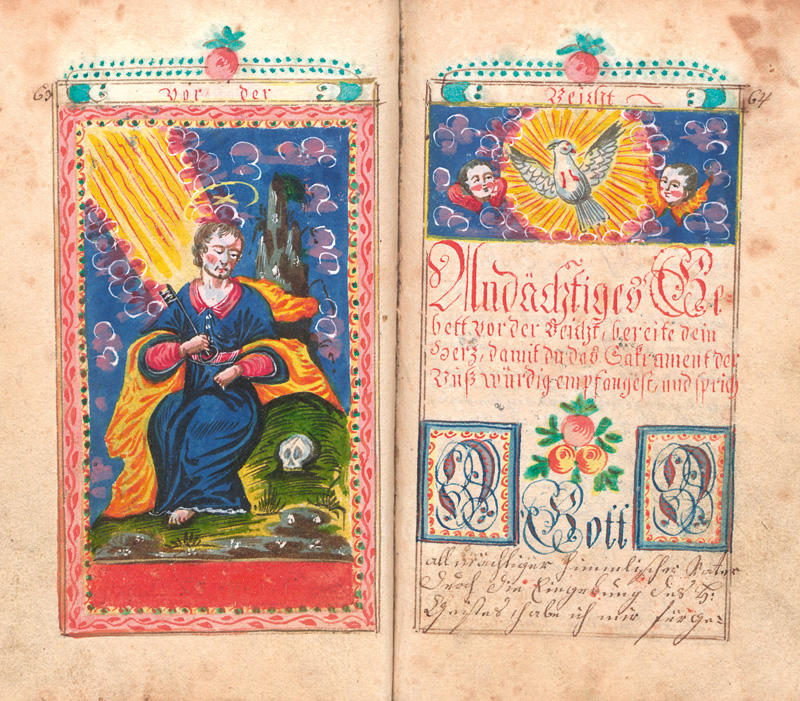 63
vor der
Beicht
64
Andächtiges Ge-
bett vor der Beicht, bereite dein
Herz, damit du das Sakrament der
Buß würdig empfangest, und sprich
O Gott
allmächtiger himmlischer Vater
durch die Eingebung des H:
Geistes habe ich mir fürge-